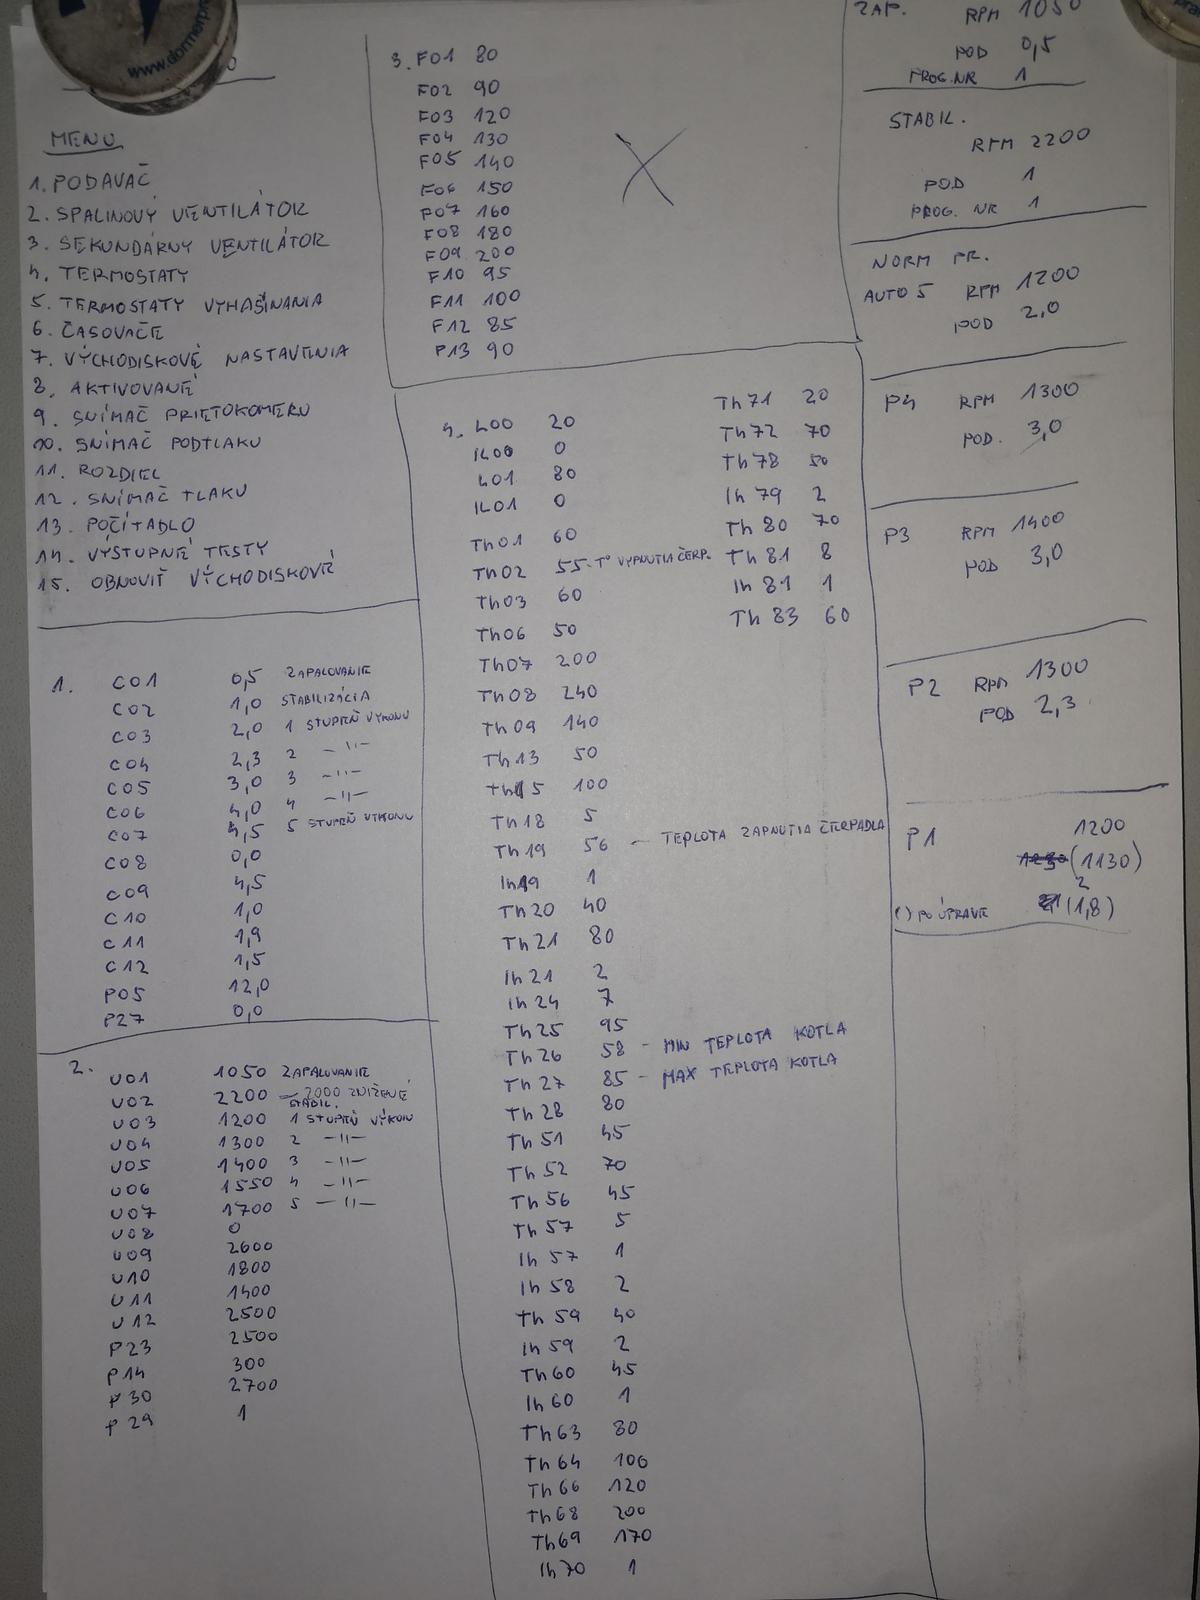 www.dormerpr
MENU
1. PODAVAČ
2. SPALINOVÝ VENTILÁTOR
3. SEKUNDÁRNY VENTILÁTOR
4. TERMOSTATY
5. TERMOSTATY VYHAŠÍNANIA
6. ČASOVAČE
7. VÝCHODISKOVÉ NASTAVENIA
8. AKTIVOVANÉ
9. SNÍMAČ PRIETOKOMERU
10. SNÍMAČ PODTLAKU
11. ROZDIEL
12. SNÍMAČ TLAKU
13. POČÍTADLO
14. VÝSTUPNÉ TESTY
15. OBNOVIŤ VÝCHODISKOVÉ
1. C01 0,5 ZAPALOVANIE
C02 1,0 STABILIZÁCIA
C03 2,0 1 STUPEŇ VÝKONU
C04 2,3 2 -"-
C05 3,0 3 -"-
C06 4,0 4 -"-
C07 4,5 5 STUPEŇ VÝKONU
C08 0,0
C09 4,5
C10 1,0
C11 1,9
C12 1,5
P05 12,0
P27 0,0
2. U01 1050 ZAPALOVANIE
U02 2200 - 2000 ZNÍŽENÉ
STABIL.
U03 1200 1 STUPEŇ VÝKON
U04 1300 2 -"-
U05 1400 3 -"-
U06 1550 4 -"-
U07 1700 5 -"-
U08 0
U09 2600
U10 1800
U11 1400
U12 2500
P23 2500
P14 300
P30 2700
P29 1
3. F01 80
F02 90
F03 120
F04 130
F05 140
F06 150
F07 160
F08 180
F09 200
F10 95
F11 100
F12 85
P13 90
X
4. L00 20
IL00 0
L01 80
IL01 0
Th01 60
Th02 55 - T° VYPNUTIA ČERP.
Th03 60
Th06 50
Th07 200
Th08 240
Th09 140
Th13 50
Th15 100
Th18 5
Th19 56 - TEPLOTA ZAPNUTIA ČERPADLA
Ih19 1
Th20 40
Th21 80
Ih21 2
Ih24 7
Th25 95
Th26 58 - MIN TEPLOTA KOTLA
Th27 85 - MAX TEPLOTA KOTLA
Th28 80
Th51 45
Th52 70
Th56 45
Th57 5
Ih57 1
Ih58 2
Th59 40
Ih59 2
Th60 45
Ih60 1
Th63 80
Th64 106
Th66 120
Th68 200
Th69 170
Ih70 1
Th71 20
Th72 70
Th78 50
Ih79 2
Th80 70
Th81 8
Ih81 1
Th83 60
ZAP. RPM 1050
POD 0,5
PROG.NR 1
STABIL.
RPM 2200
POD 1
PROG. NR 1
NORM PR.
AUTO 5 RPM 1200
POD 2,0
P4 RPM 1300
POD. 3,0
P3 RPM 1400
POD 3,0
P2 RPM 1300
POD 2,3
P1 1200
(1130)
2
() PO ÚPRAVE (1,8)